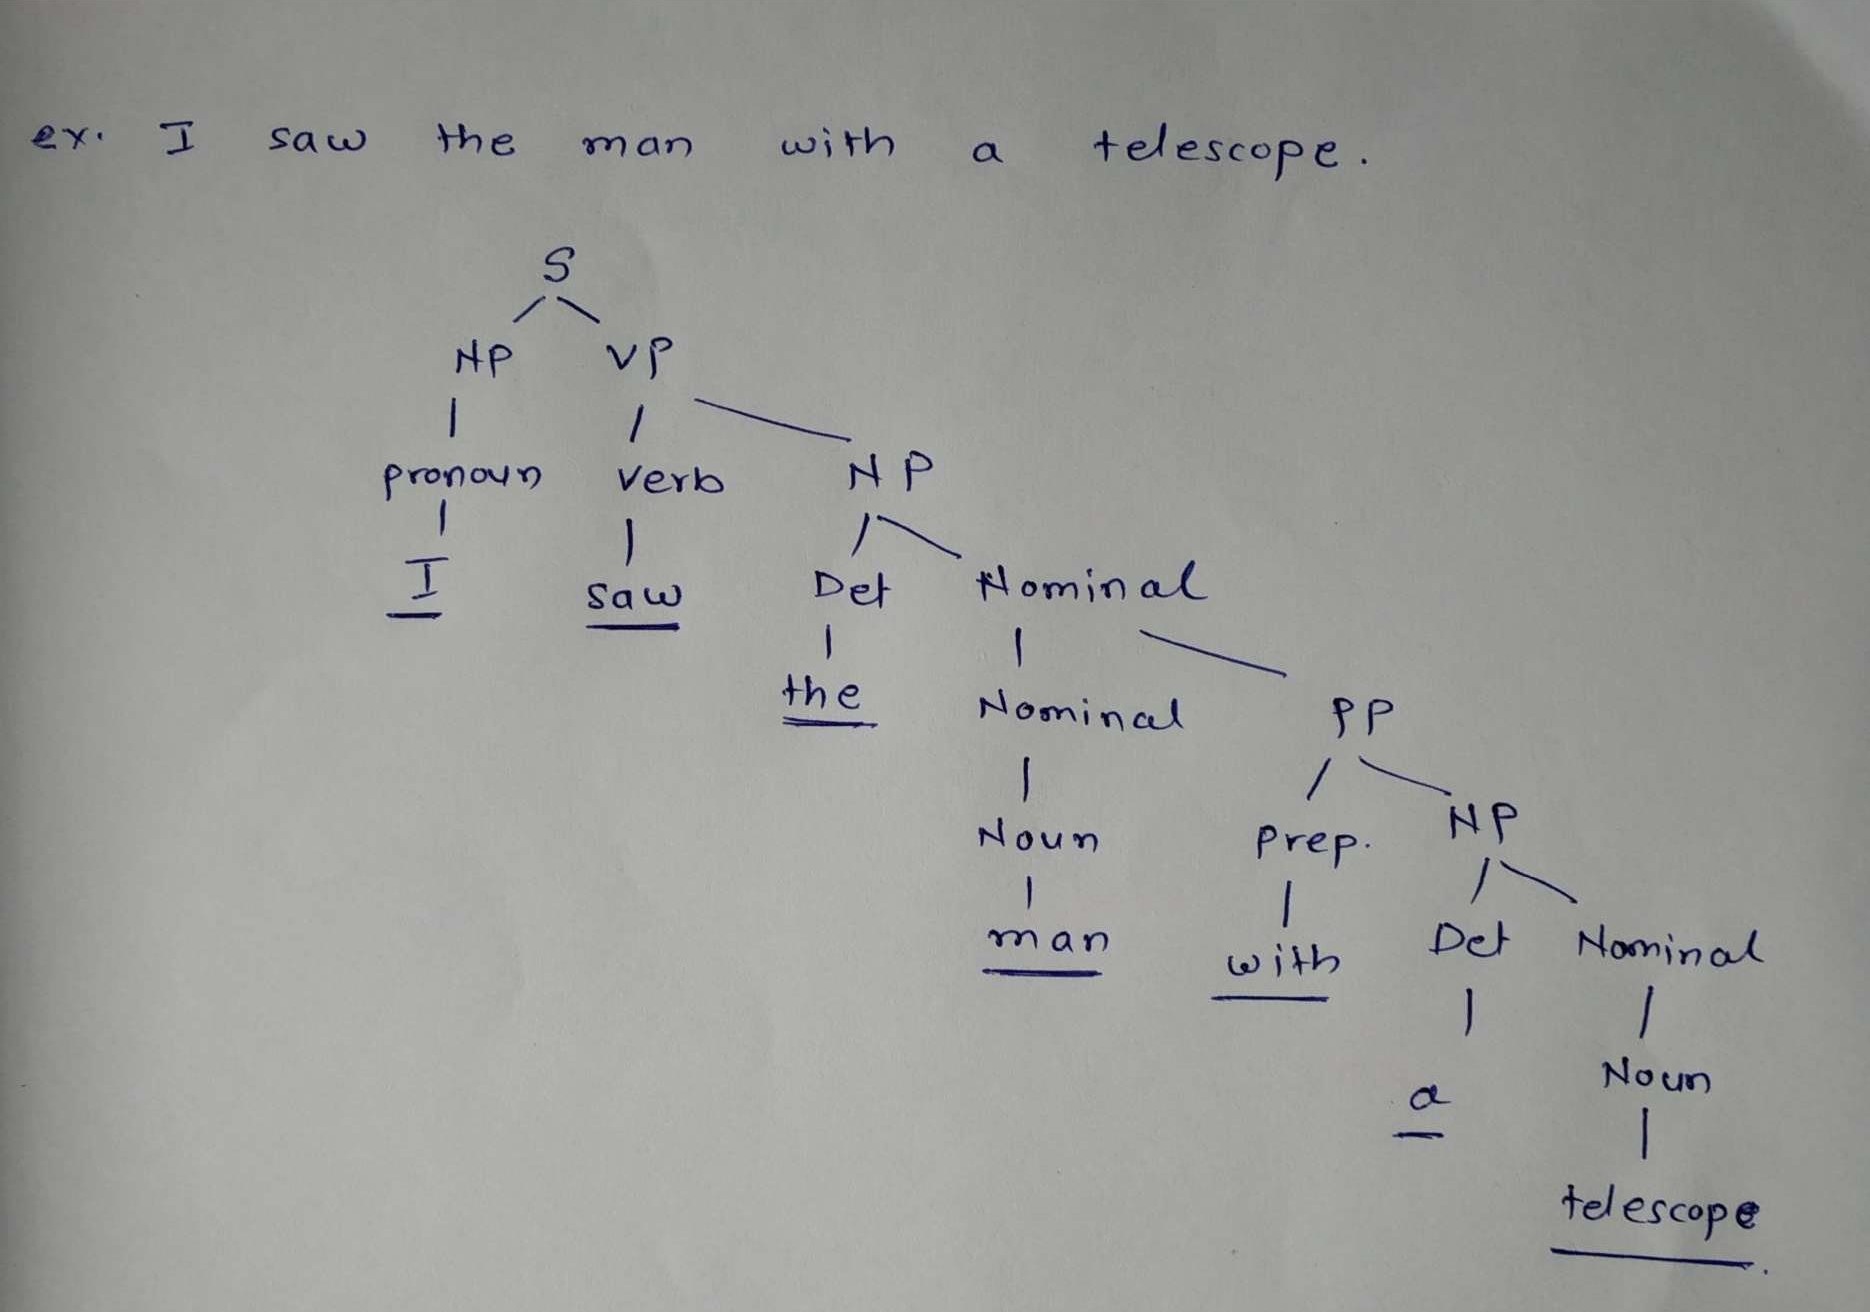 ex. I saw the man with a telescope.
S
NP VP
pronoun verb NP
I saw Det Nominal
the Nominal PP
Noun Prep. NP
man with Det Nominal
a Noun
telescope.